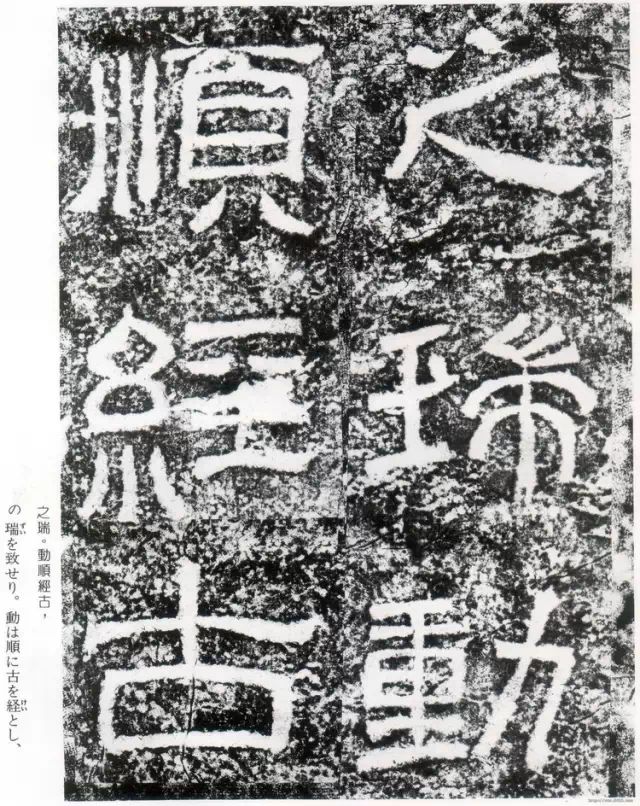 之瑞動
順經古
之瑞。動順經古，
の瑞ずいを致せり。動は順に古を経けいとし、